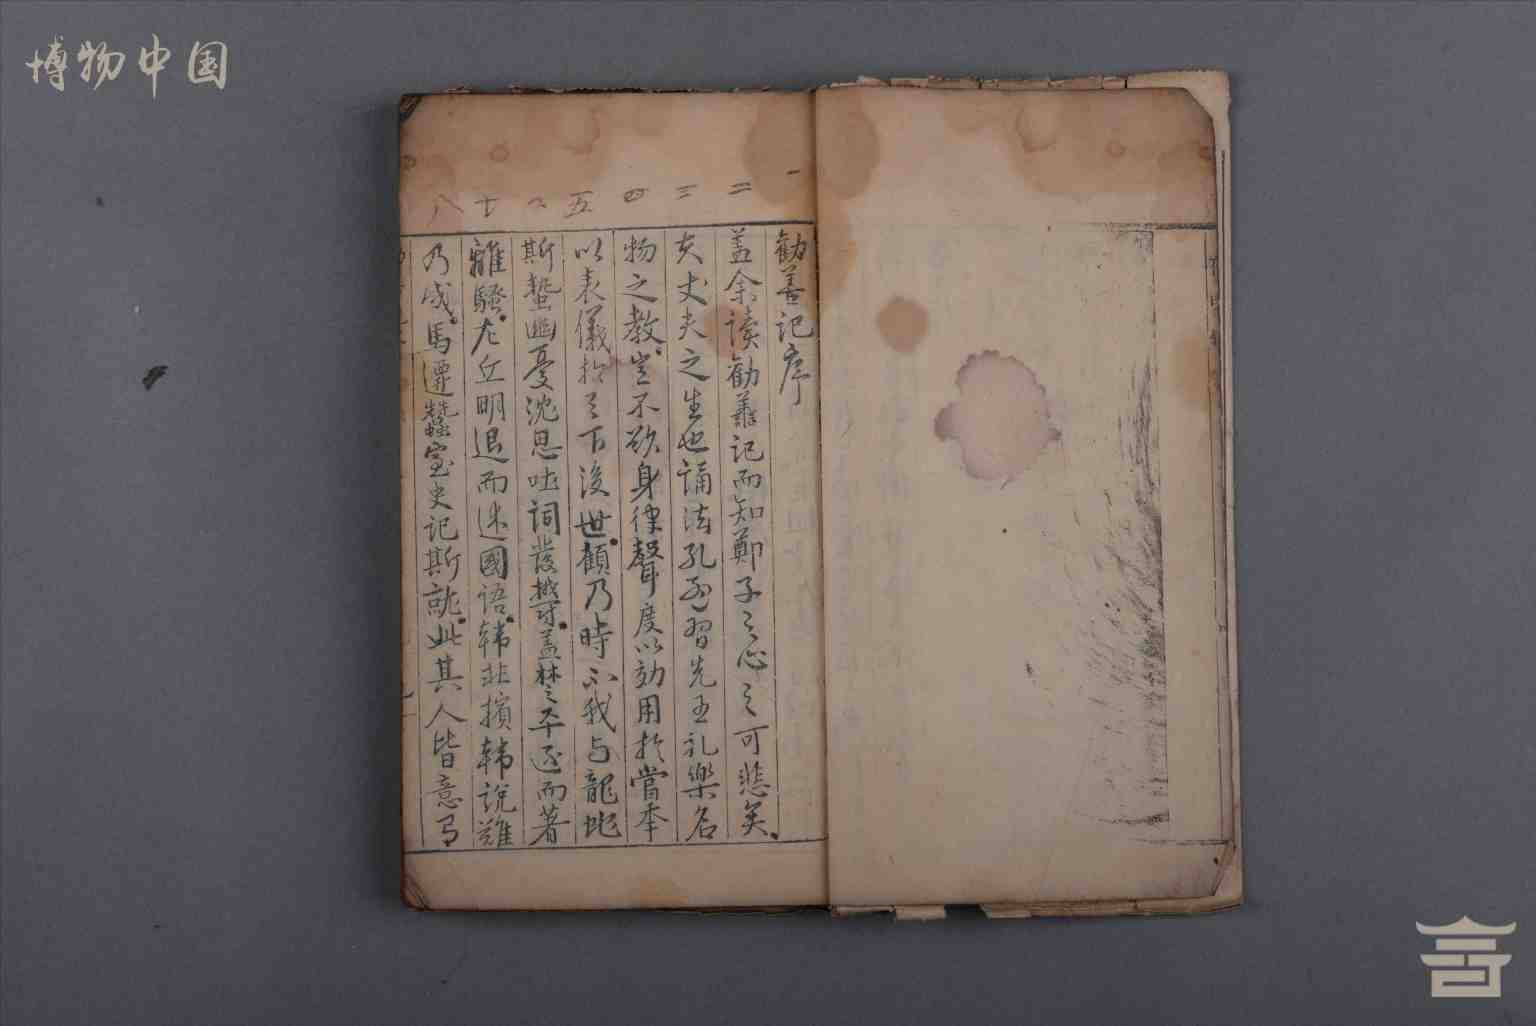 博物中国
一 二 三 四 五 六 七 八
勧善记序
盖余读勧善记而知鄭子之心之可悲矣
夫丈夫之生也诵法孔孟习先王礼樂名
物之教岂不欲身律聲度以効用於當年
以表儀於天下後世顧乃時不我与龍蛇
斯蟄幽憂沈思吐词發 盖林 而著
離騷左丘明退而述國语韩非擯韩说難
乃成馬遷蠶室史记斯就此其人皆意有